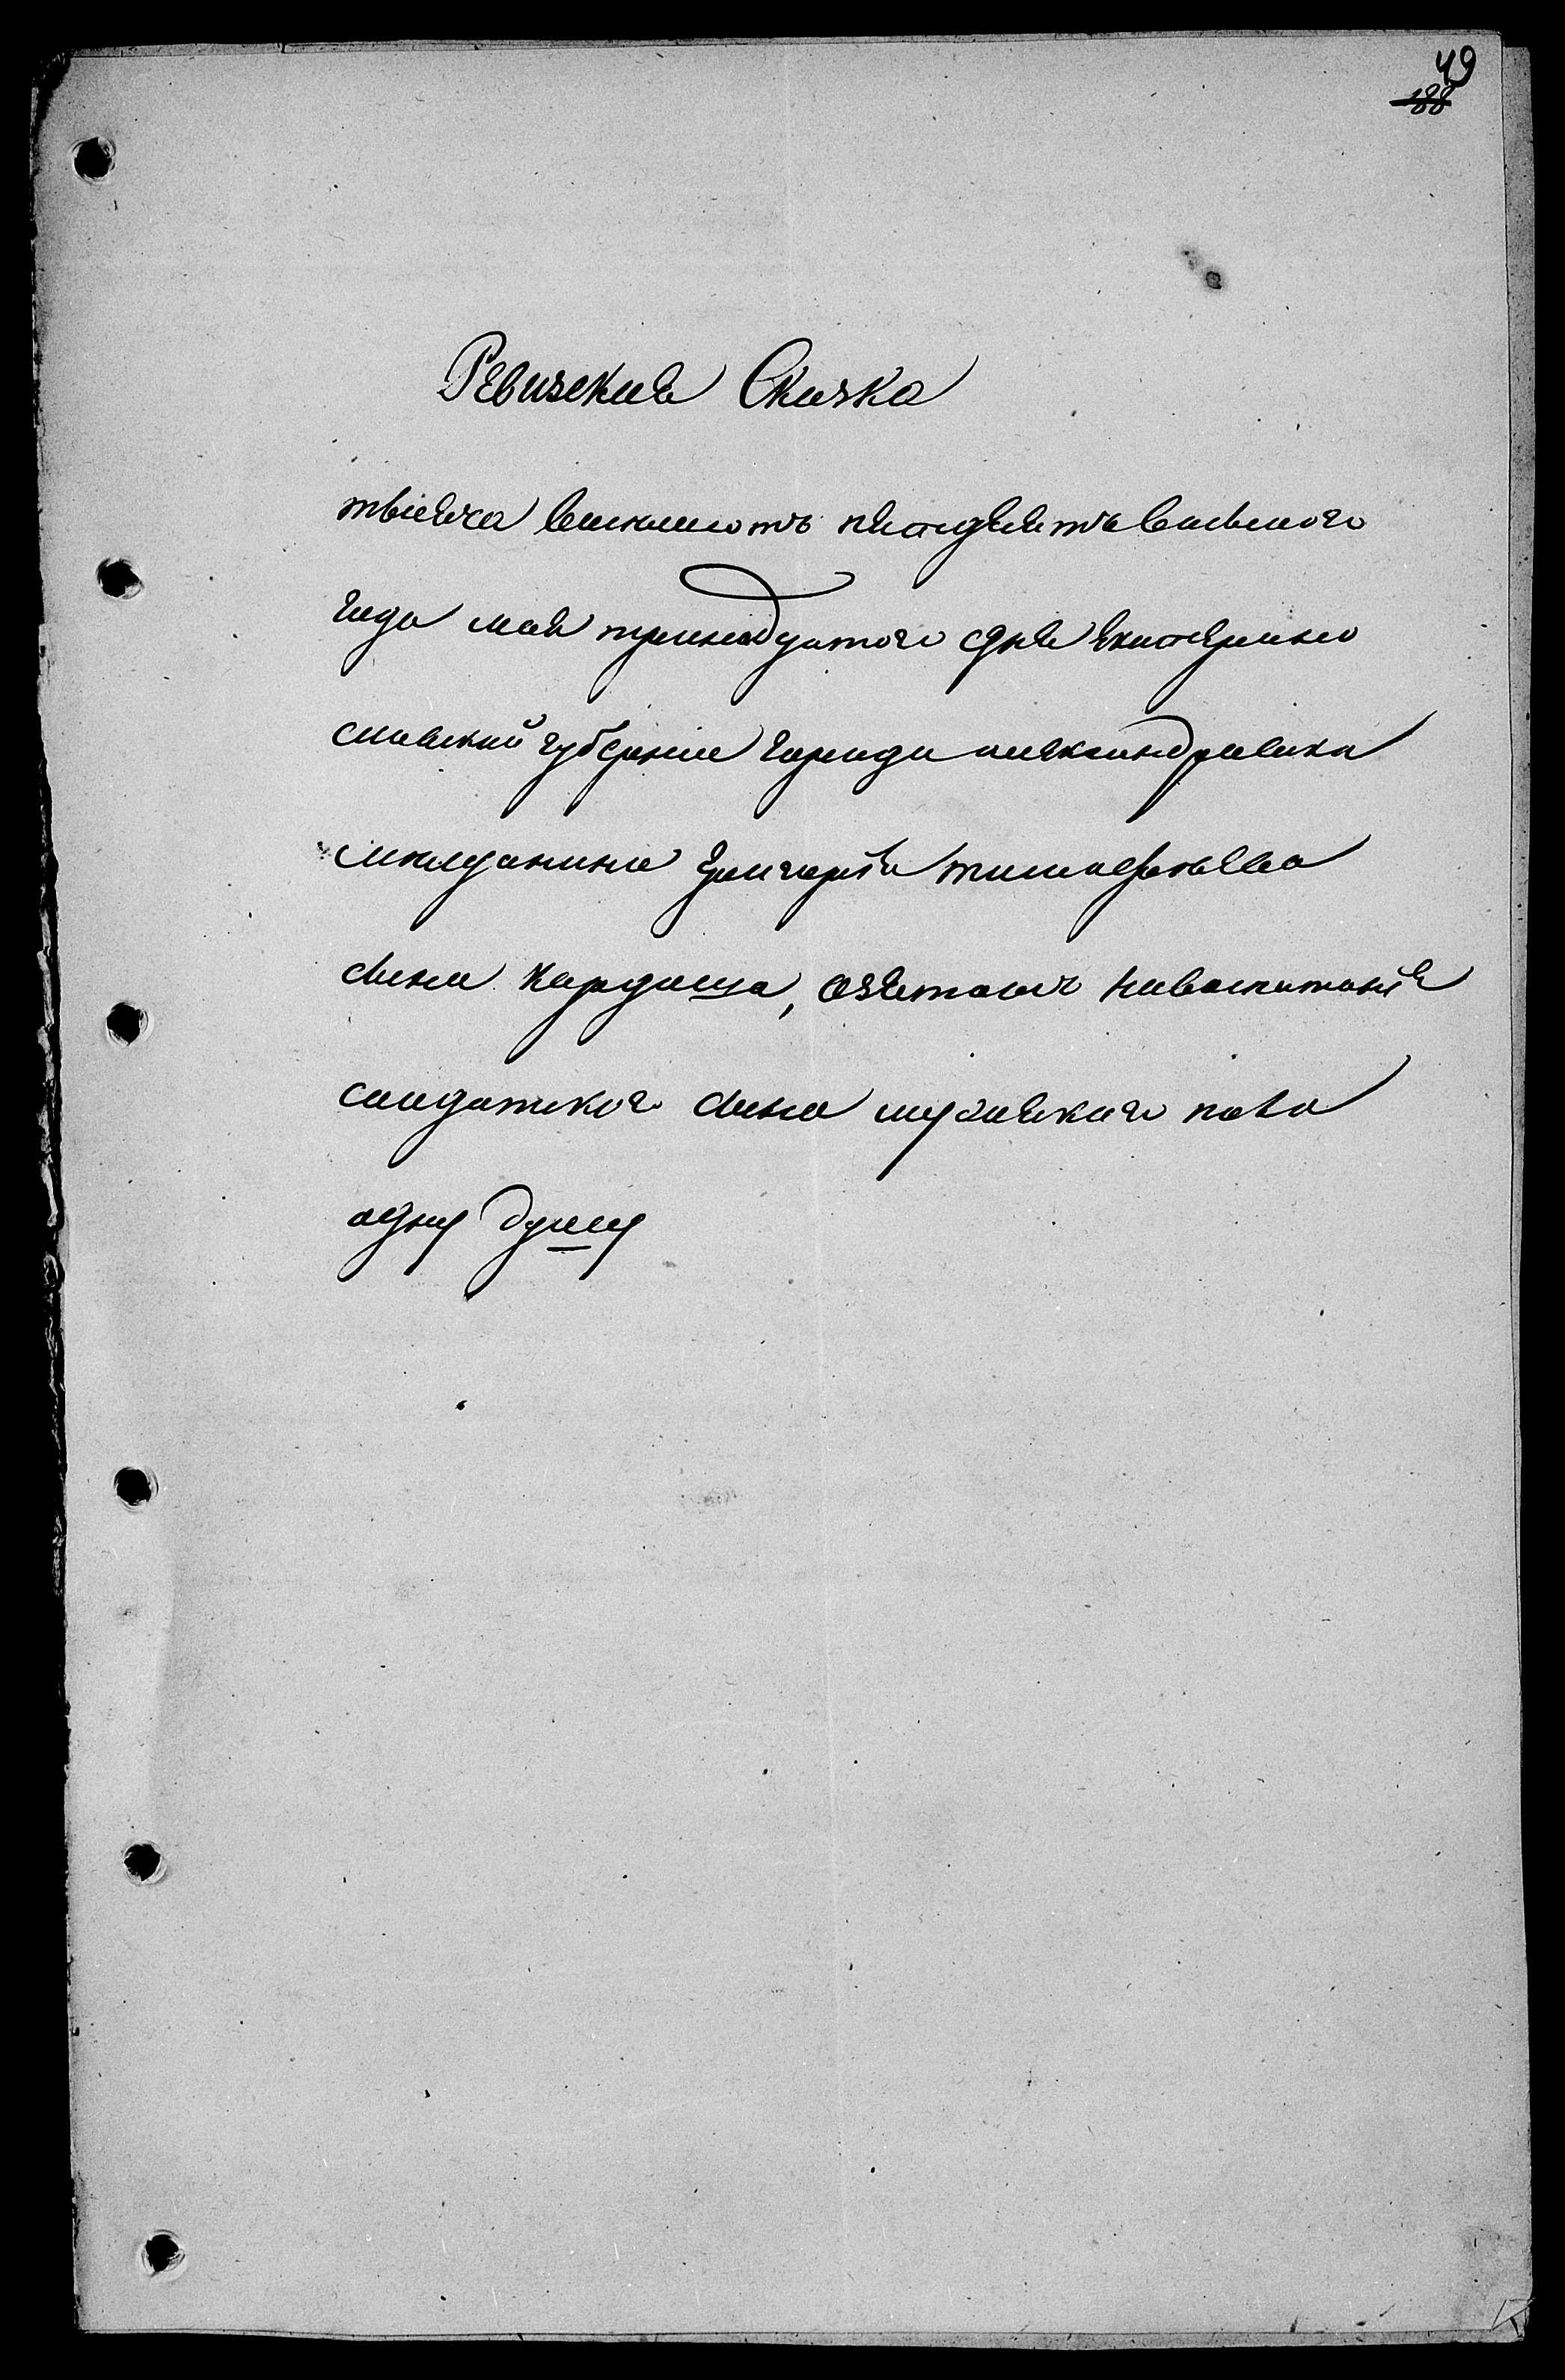 49
188
Ревизская Сказка
тысяча восемьсотъ пятдесятъ восьмого
года мая тринадцатого дня Екатерино
славской губерніи города александровска
мещанина Григорія тимофеева
сына Кардаша, о взятомъ на воспитаніе
солдатского сына мужескаго пола
одну душу